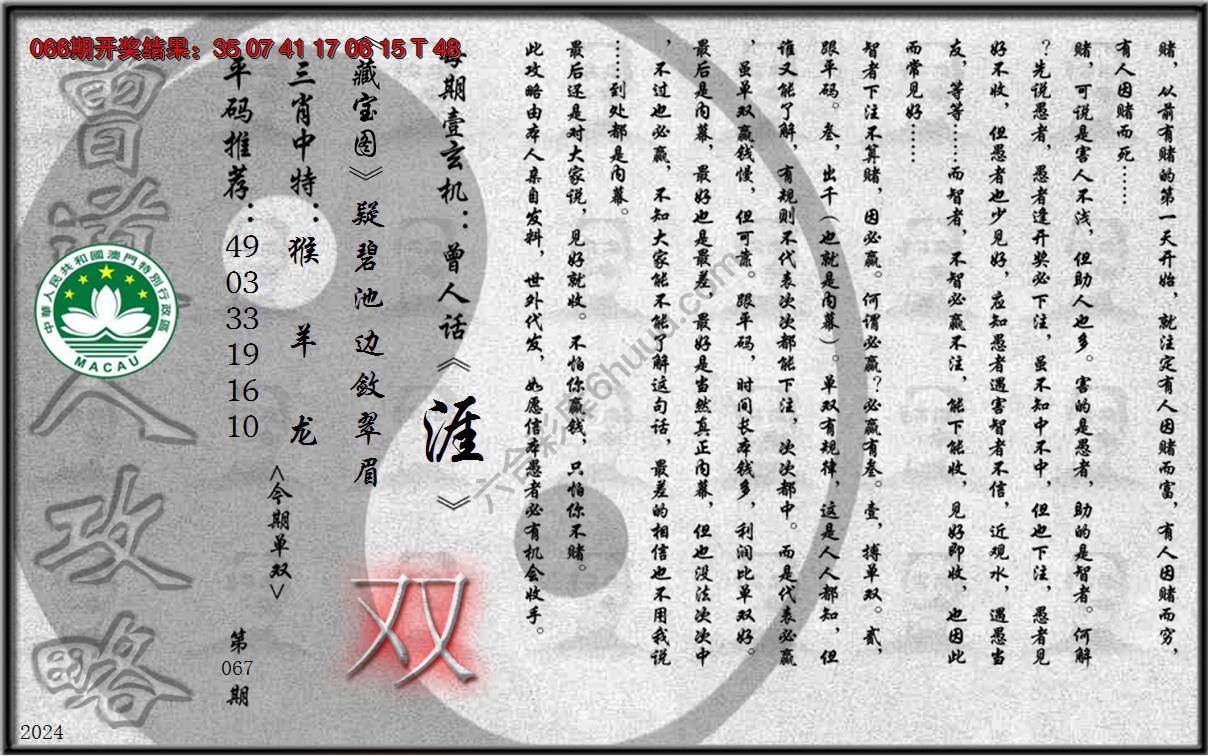 066期开奖结果：35 07 41 17 06 15 T 48
赌，从前有赌的第一天开始，就注定有人因赌而富，有人因赌而穷，
有人因赌而死……
赌，可说是害人不浅，但助人也多。害的是愚者，助的是智者。何解
？先说愚者，愚者逢开奖必下注，虽不知中不中，但也下注，愚者见
好不收，但愚者也少见好，应知愚者遇害智者不信，近观水，遇愚当
友，等等……而智者，不智必赢不注，能下能收，见好即收，也因此
而常见好……
智者下注不算赌，因必赢。何谓必赢？必赢有叁。壹，搏单双。贰，
跟平码。叁，出千（也就是内幕）。单双有规律，这是人人都知，但
谁又能了解，有规则不代表次次都能下注，次次都中。而是代表必赢
，虽单双赢钱慢，但可靠。跟平码，时间长本钱多，利润比单双好。
最后是内幕，最好也是最差，最好是当然真正内幕，但也没法次次中
，不过也必赢，不知大家能不能了解这句话，最差的相信也不用我说
……到处都是内幕。
最后还是对大家说，见好就收。不怕你赢钱，只怕你不赌。
此攻略由本人亲自发料，世外代发，如愿信本愚者必有机会收手。
每期壹玄机：曾人话《涯》
《藏宝图》疑碧池边敛翠眉
三肖中特：猴 羊 龙
平码推荐：49 03 33 19 16 10
<今期单双>
双
第067期
曾道人攻略
中華人民共和國澳門特別行政區
MACAU
2024